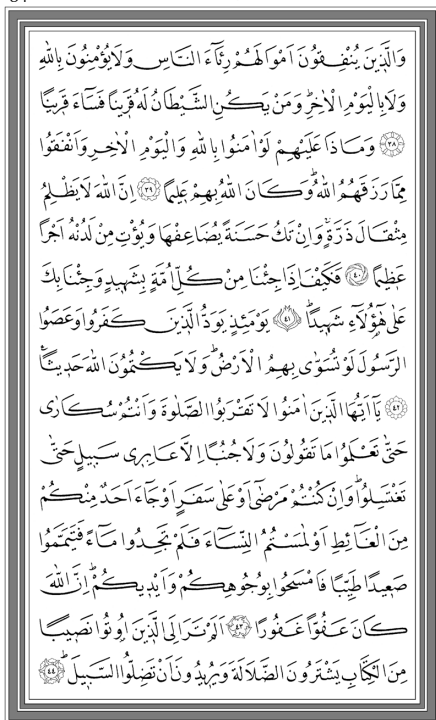 وَالَّذِينَ يُنْفِقُونَ اَمْوَالَهُمْ رِئَٓاءَ النَّاسِ وَلَا يُؤْمِنُونَ بِاللّٰهِ
وَلَا بِالْيَوْمِ الْاٰخِرِۜ وَمَنْ يَكُنِ الشَّيْطَانُ لَهُ قَرِينًا فَسَٓاءَ قَرِينًا
﴿٣٨﴾ وَمَاذَا عَلَيْهِمْ لَوْ اٰمَنُوا بِاللّٰهِ وَالْيَوْمِ الْاٰخِرِ وَاَنْفَقُوا
مِمَّا رَزَقَهُمُ اللّٰهُۜ وَكَانَ اللّٰهُ بِهِمْ عَلِيمًا ﴿٣٩﴾ اِنَّ اللّٰهَ لَا يَظْلِمُ
مِثْقَالَ ذَرَّةٍۚ وَاِنْ تَكُ حَسَنَةً يُضَاعِفْهَا وَيُؤْتِ مِنْ لَدُنْهُ اَجْرًا
عَظِيمًا ﴿٤٠﴾ فَكَيْفَ اِذَا جِئْنَا مِنْ كُلِّ اُمَّةٍ بِشَهِيدٍ وَجِئْنَا بِكَ
عَلٰى هٰٓؤُ۬لَٓاءِ شَهِيدًاۜ ﴿٤١﴾ يَوْمَئِذٍ يَوَدُّ الَّذِينَ كَفَرُوا وَعَصَوُا
الرَّسُولَ لَوْ تُسَوّٰى بِهِمُ الْاَرْضُۜ وَلَا يَكْتُمُونَ اللّٰهَ حَدِيثًا۟
﴿٤٢﴾ يَٓا اَيُّهَا الَّذِينَ اٰمَنُوا لَا تَقْرَبُوا الصَّلٰوةَ وَاَنْتُمْ سُكَارٰى
حَتّٰى تَعْلَمُوا مَا تَقُولُونَ وَلَا جُنُبًا اِلَّا عَابِرِى سَبِيلٍ حَتّٰى
تَغْتَسِلُواۜ وَاِنْ كُنْتُمْ مَرْضٰٓى اَوْ عَلٰى سَفَرٍ اَوْ جَٓاءَ اَحَدٌ مِنْكُمْ
مِنَ الْغَٓائِطِ اَوْ لٰمَسْتُمُ النِّسَٓاءَ فَلَمْ تَجِدُوا مَٓاءً فَتَيَمَّمُوا
صَعِيدًا طَيِّبًا فَامْسَحُوا بِوُجُوهِكُمْ وَاَيْدِيكُمْۜ اِنَّ اللّٰهَ
كَانَ عَفُوًّا غَفُورًا ﴿٤٣﴾ اَلَمْ تَرَ اِلَى الَّذِينَ اُوتُوا نَصِيبًا
مِنَ الْكِتَابِ يَشْتَرُونَ الضَّلَالَةَ وَيُرِيدُونَ اَنْ تَضِلُّوا السَّبِيلَۜ ﴿٤٤﴾